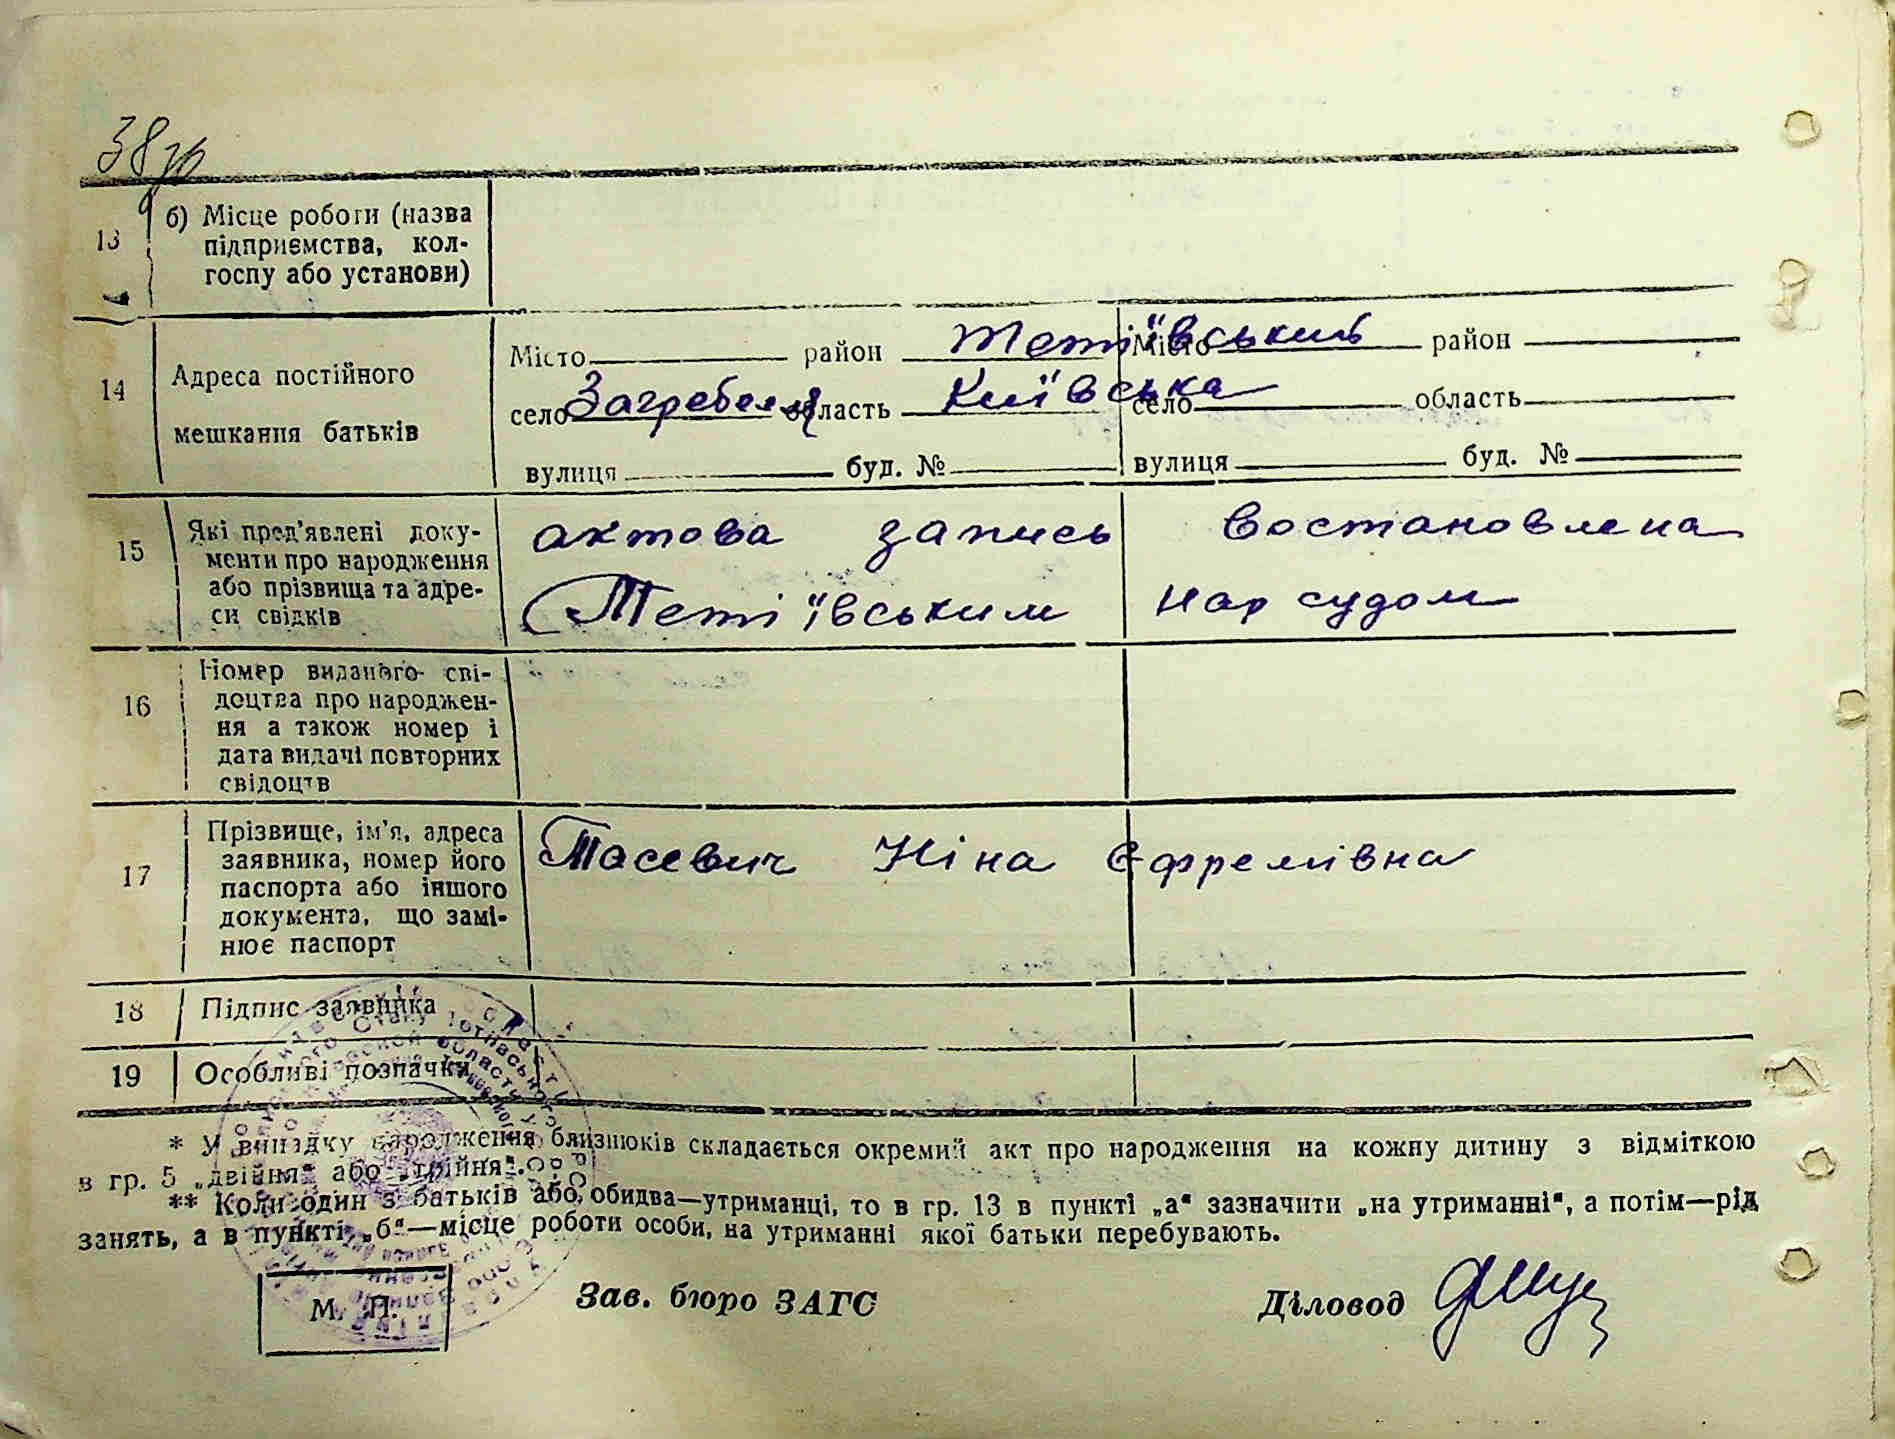 38зв
13 б) Місце роботи (назва
підприємства, кол-
госпу або установи)
14 Адреса постійного
мешкання батьків
Місто район Тетіївський Місто район
село Загребелля область Київська село область
вулиця буд. № вулиця буд. №
15 Які пред'явлені доку-
менти про народження
або прізвища та адре-
си свідків
актова запись востановлена
Тетіївським нар судом
16 Номер виданого сві-
доцтва про народжен-
ня а також номер і
дата видачі повторних
свідоцтв
17 Прізвище, ім'я, адреса
заявника, номер його
паспорта або іншого
документа, що замі-
нює паспорт
Тасевич Ніна Єфремівна
18 Підпис заявника
19 Особливі позначки
* У випадку народження близнюків складається окремий акт про народження на кожну дитину з відміткою
в гр. 5 „двійня“ або „трійня“.
** Коли один з батьків або обидва—утриманці, то в гр. 13 в пункті „а“ зазначити „на утриманні“, а потім—рід
занять, а в пункті „б“—місце роботи особи, на утриманні якої батьки перебувають.
М. П. Зав. бюро ЗАГС Діловод